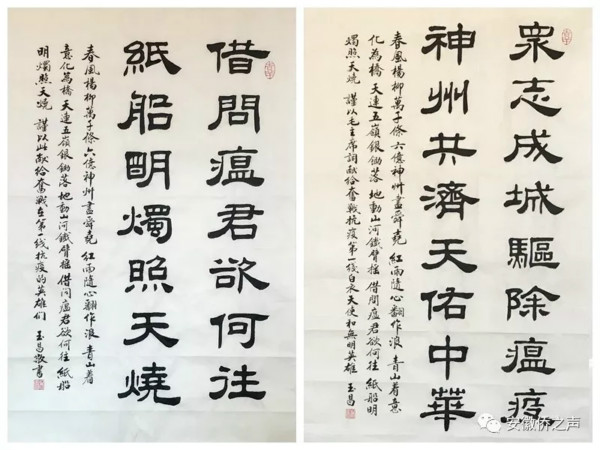 借問瘟君欲何往
紙船明燭照天燒
春風楊柳萬千條 六億神州盡舜堯 紅雨隨心翻作浪 青山着
意化為橋 天連五嶺銀鋤落 地動山河鐵臂搖 借問瘟君欲何往 紙船
明燭照天燒 謹以此獻給奮戰在第一線抗疫的英雄们 玉昌敬書
眾志成城驅除瘟疫
神州共濟天佑中華
春風楊柳萬千條 六億神州盡舜堯 紅雨隨心翻作浪 青山着意
化為橋 天連五嶺銀鋤落 地動山河鐵臂搖 借問瘟君欲何往 紙船明
燭照天燒 謹以毛主席詞獻給奮戰抗疫第一線白衣天使和無明英雄 玉昌
安徽侨之声